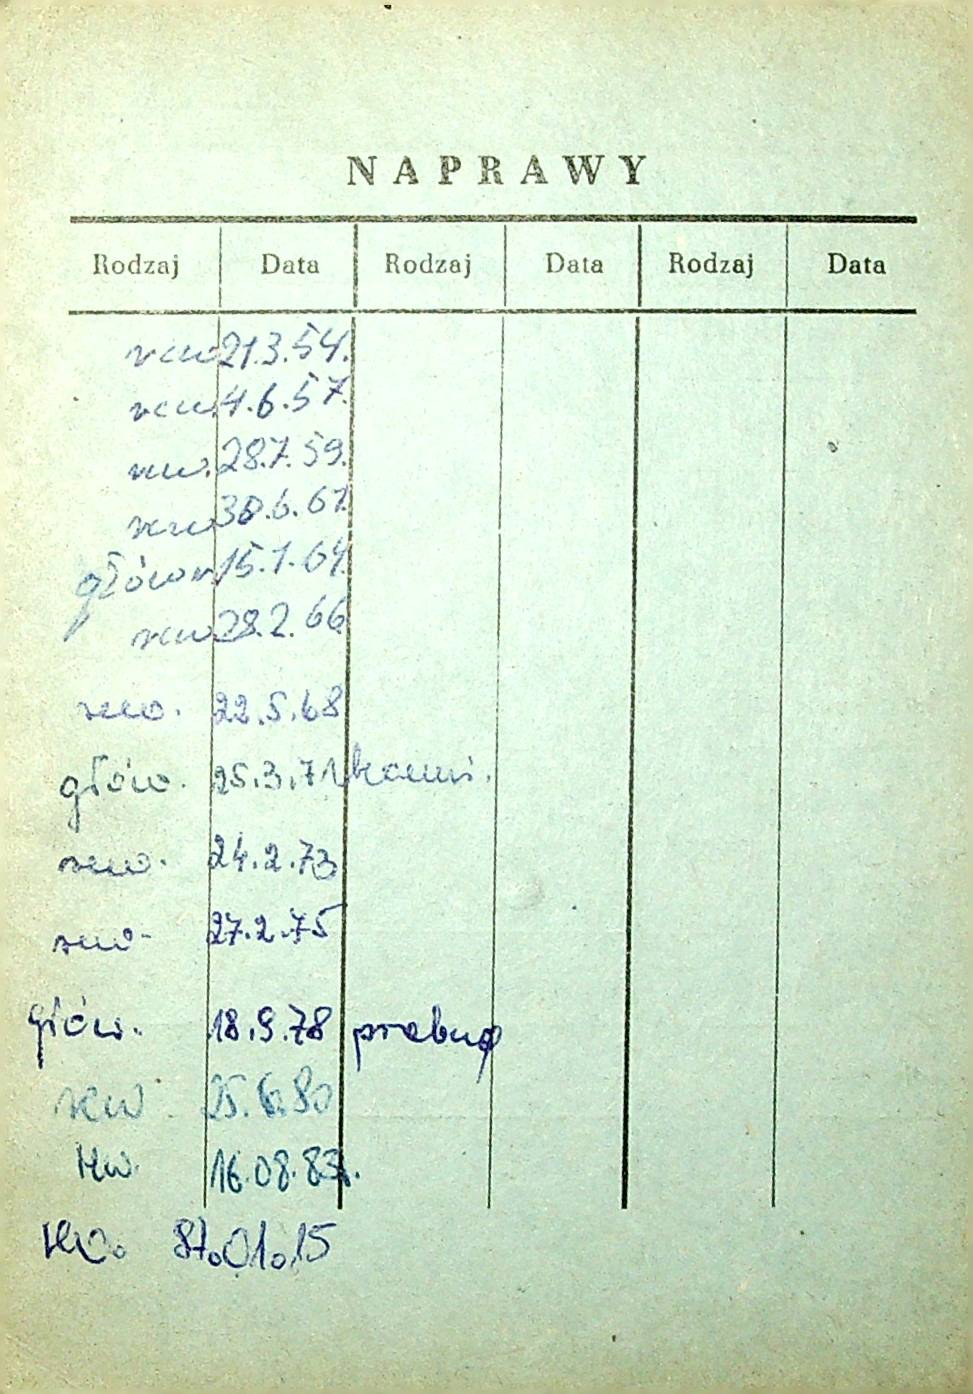 NAPRAWY
Rodzaj Data Rodzaj Data Rodzaj Data
rew 21.3.54.
rew. 4.6.57.
rew. 28.7.59.
rew 30.6.61.
główn 15.1.64.
rew 28.2.66
rew. 22.5.68
głów. 25.3.71
rew. 24.2.73
rew. 27.2.75
głów. 18.9.78
rew. 25.6.80
rew. 16.08.83r.
rew. 87.01.15